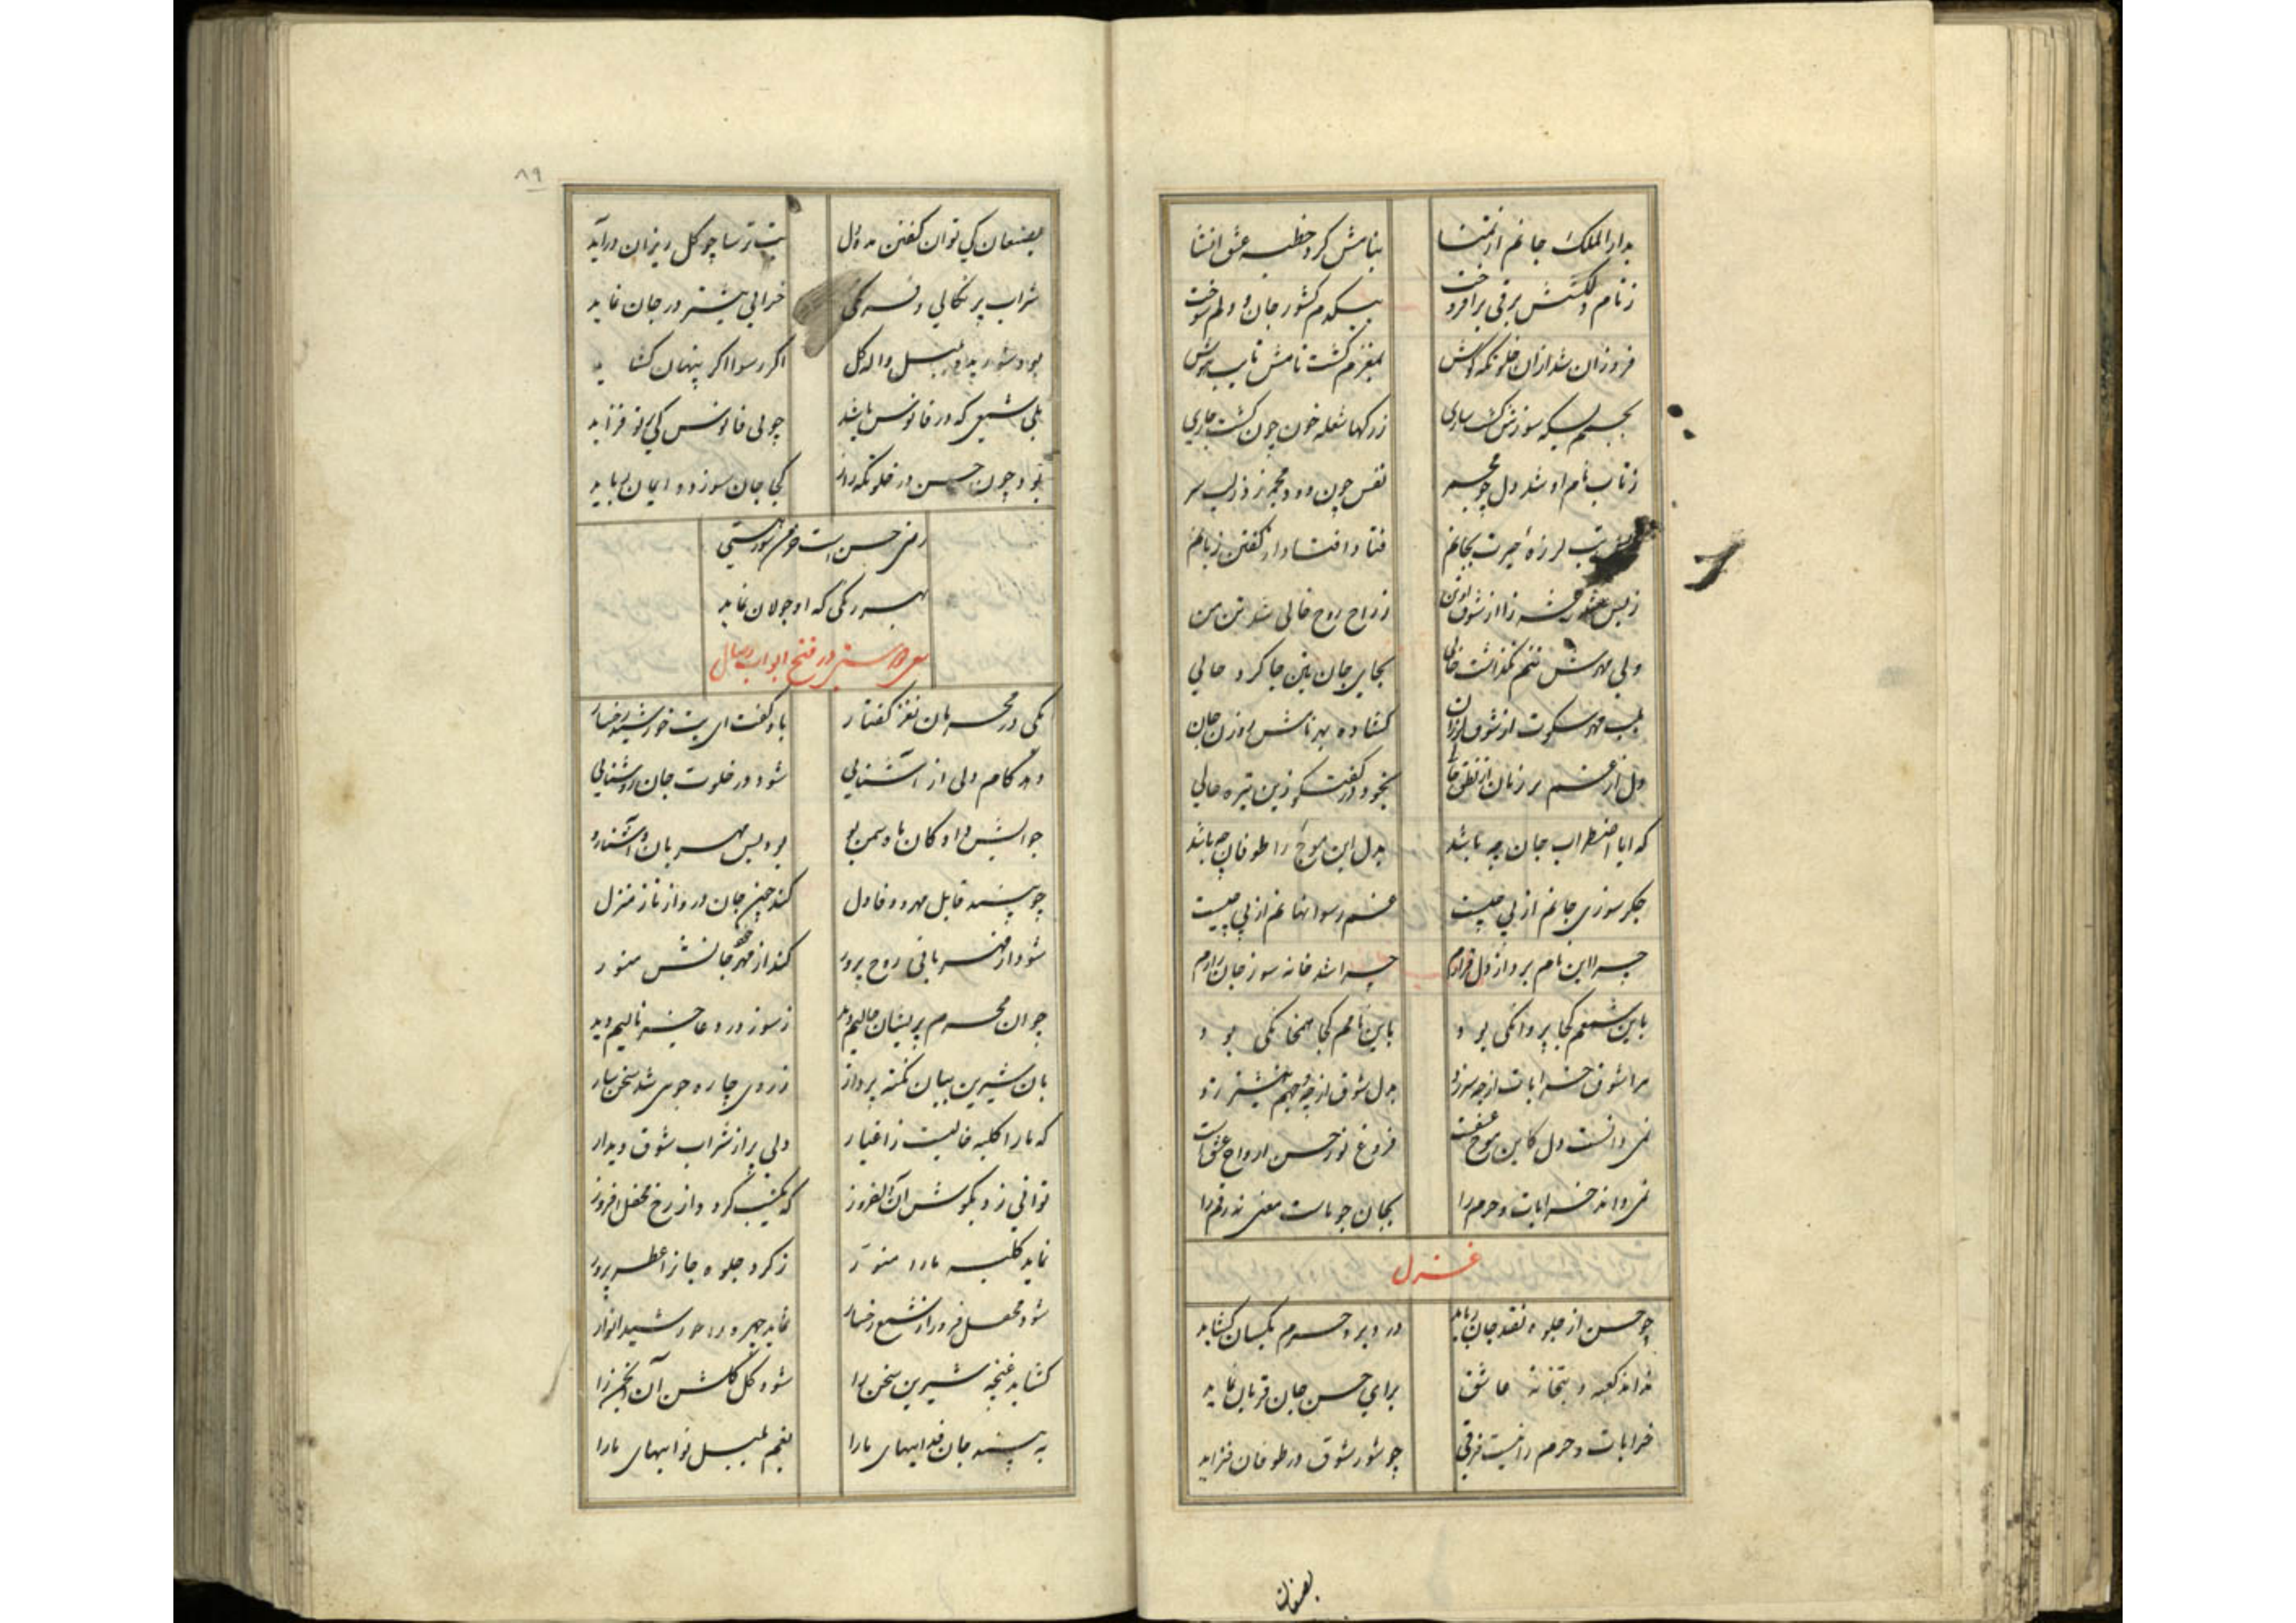 بدارالملک جانم از تمنا
بنامش کرد خطبه عشق انشا
ز نام دلکشش برقی برافروخت
بیکدم کشور جان و دلم سوخت
فروزان شد ازان خلوتکه کوش
بمغزم کشت نامش
بجسمم بسکه سوزش کشت ساری
ز رکها شعله خون چون کشت جاری
ز تاب نام او شد دل چو مجمر
نفس چون دود مجمر زد ز لب سر
تب لرزه حیرت بجانم
فتاد افتاد از کفتن زبانم
ز بس شد رعشه زا از شوق
ز راح روح خالی شد تن من
ولی مهرش تنم نکذاشت خالی
بجای جان بتن جا کرد حالی
بلب مهر سکوت از شوق لرزان
کشاده بهر نامش روزن جان
دل از غم بر زبان از نطق خالی
بخود در کفتکو زین تیره حالی
که ایا اضطراب جان چه باشد
بدل این موج را طوفان چه باشد
جکر سوزی جانم از پی چیست
غم رسوا نهانم از پی چیست
چرا این نام برد از دل قرارم
چرا شد خانه سوز جان زارم
باین شمعم کجا پروانکی بود
باین نامم کجا همخانکی بود
مرا شوق خرابات از چه سر زد
بدل شوق از چه نیشتر زد
نمی دانست دل کاین موج عشقست
فروغ نور حسن ارواح عشقست
نمی داند خرابات و حرم را
بجان جویاست معنی
غزل
چو حسن از جلوه نقد جان رباید
در دیر و حرم یکسان کشاید
نداند کعبه و بتخانه عاشق
برای حسن جان قربان نماید
خرابات و حرم را نیست فرقی
چو شور شوق در طوفان فزاید
بصنعان
۸۹
بصنعان کی توان کفتن مده دل
بت ترسا چو کل ریزان درآید
شراب پرتکالی و فرنکی
خرابی بیشتر در جان نماید
بود شوریده بلبل واله کل
اکر رسوا اکر پنهان کشاید
بلی شمعی که در فانوس باشد
چو بی فانوس کی نور فزاید
بود چون حسن در خلوتکه راز
کجا جان سوزد و ایمان رباید
رضی حسن است
بهر رنکی که او جولان نماید
در فتح ابواب وصال
یکی در محرمان نغز کفتار
باو کفت ای بت خورشید رخسار
دهد کام دلی از آشنایی
شود در خلوت جان روشنایی
جوابش داد کان ماه سمن بو
بود بس مهربان و آشنا رو
چو بیند قابل مهر و وفا دل
کند چون جان درو از ناز منزل
شود از مهربانی روح پرور
کند از مهر جانش منور
چو ان محرم پریشان حالیم دید
ز سوز درد عاجز نالیم دید
بان شیرین بیان نکته پرداز
ز روی چاره جویی شد سخن ساز
که ما را کلبه خالیست ز اغیار
دلی پر از شراب شوق دیدار
توانی زد بکوشش آن دلفروز
که یکشب کردد از رخ محفل افروز
نماید کلبه ما را منور
ز کرد جلوه جانرا عطر پرور
شود محفل فروز از شمع رخسار
نماید چهره را خورشید انوار
کشاید غنچه شیرین سخن را
شود کل کلشن آن انجمن را
به بیند جان فداییهای ما را
بفهمد بلبل نواییهای ما را